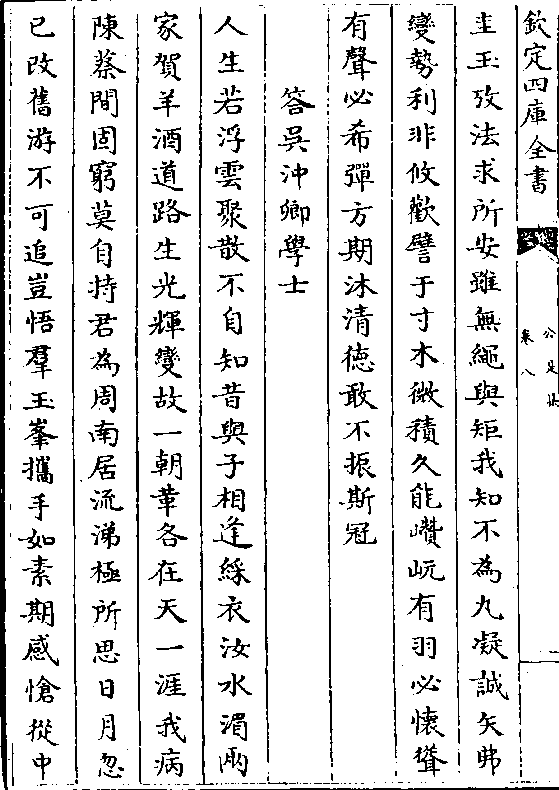 欽定四庫全書
公是集
卷八
圭玉攷法求所安雖無繩與矩我知不為九凝誠矢弗
變勢利非攸歡譬于寸木微積久能巑岏有羽必懷聳
有聲必希彈方期沐清德敢不振斯冠
答吳沖卿學士
人生若浮雲聚散不自知昔與子相逢綵衣汝水湄兩
家賀羊酒道路生光輝變故一朝革各在天一涯我病
陳蔡間固窮莫自持君為周南居流涕極所思日月忽
已改舊游不可追豈悟羣玉峯攜手如素期感愴從中